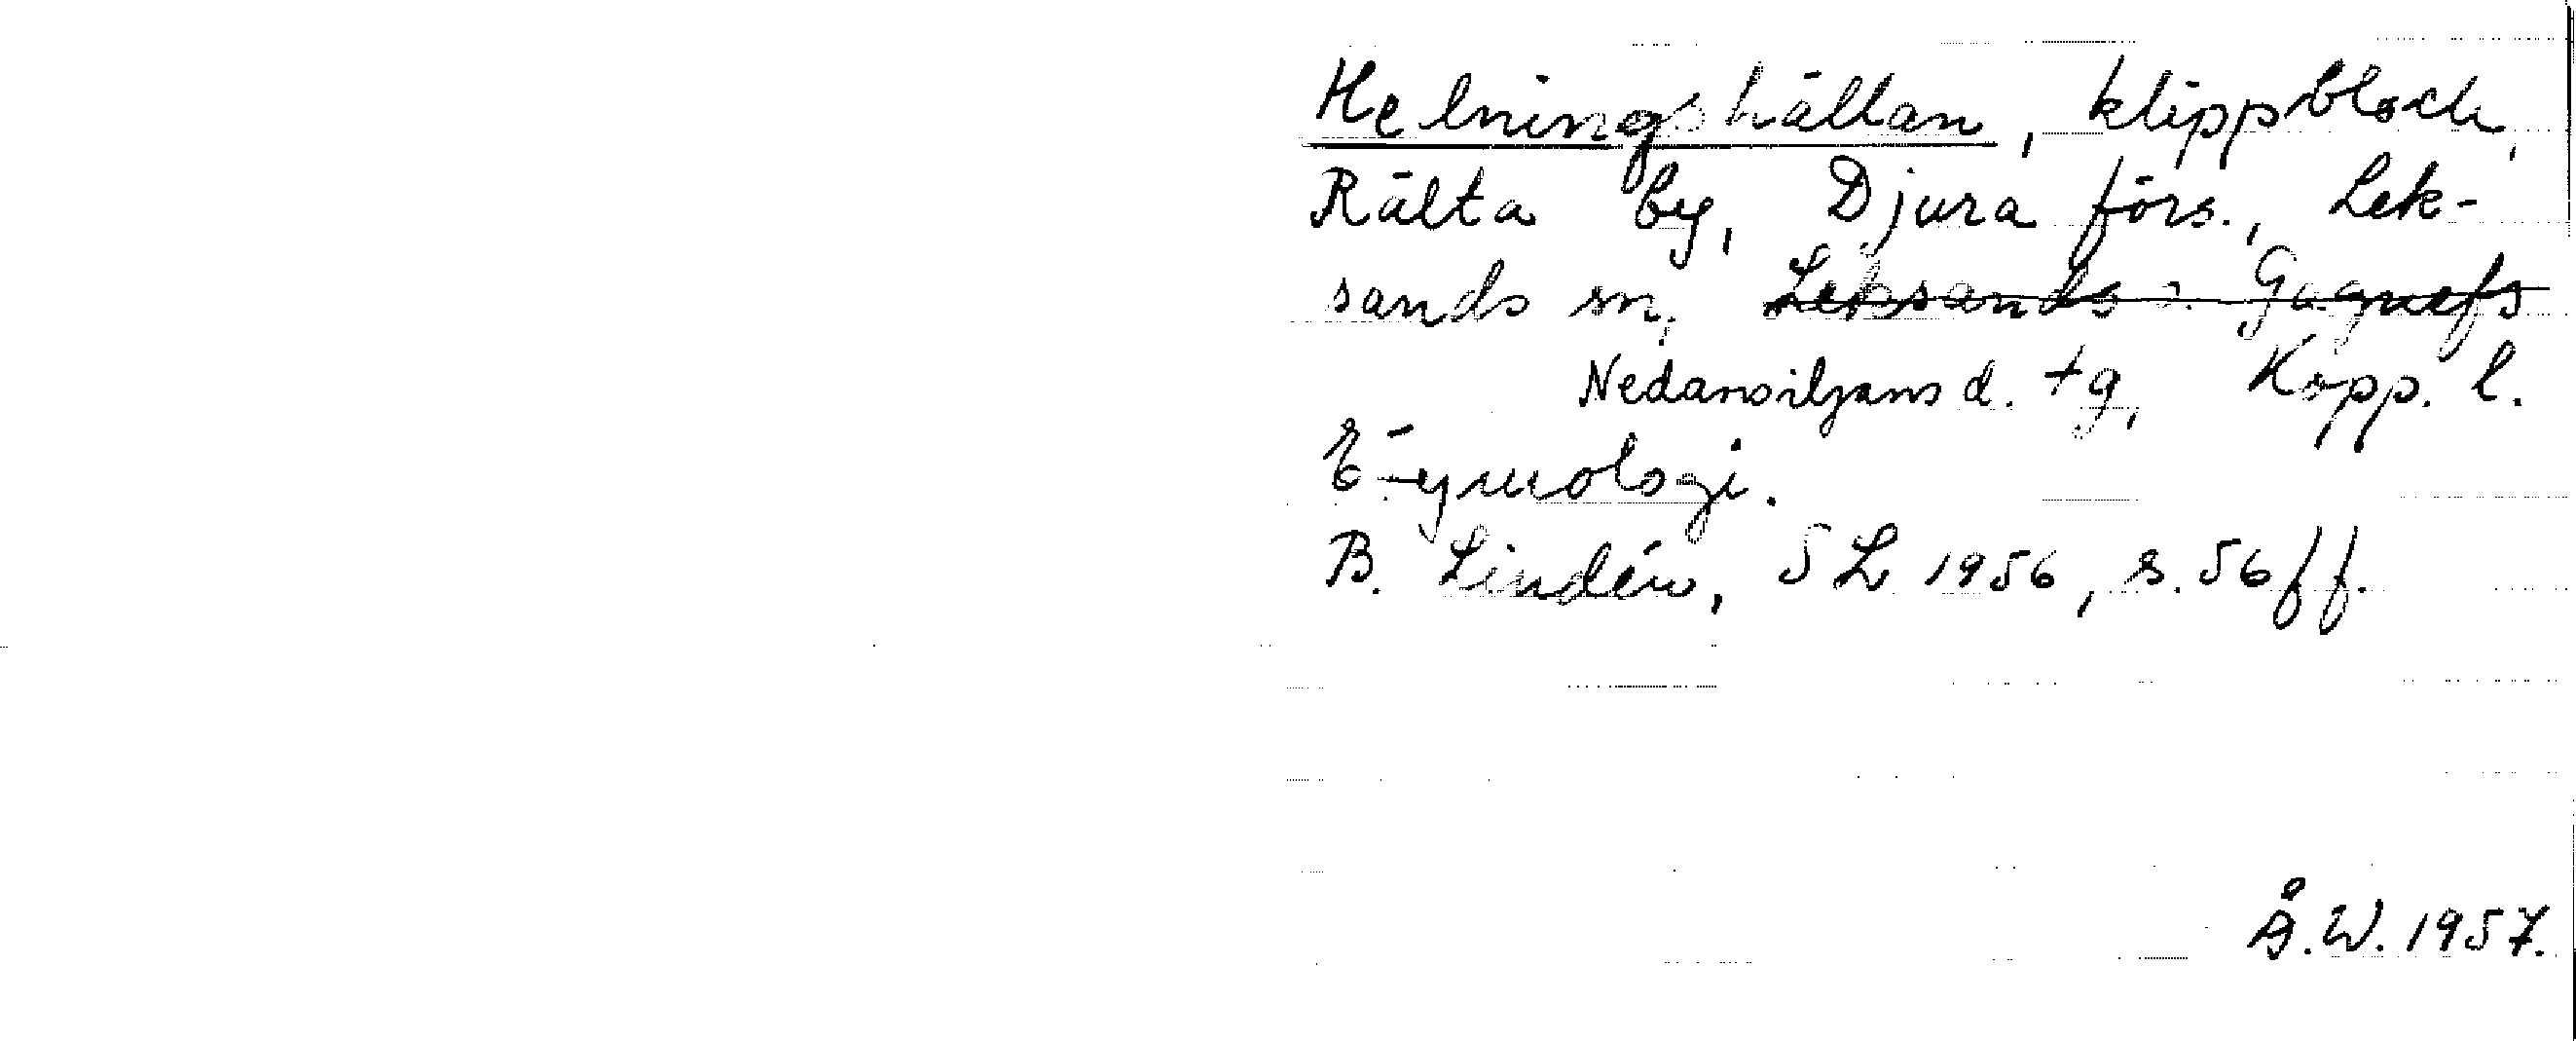 Helningshällan, klippblock,
Rälta by, Djura förs., Lek-
sands sn, Leksands o. Gagnefs
Nedansiljans d. tg, Kopp. l.
Etymologi.
B. Lindén, SL 1956, s. 56 ff.
Å.W. 1957.